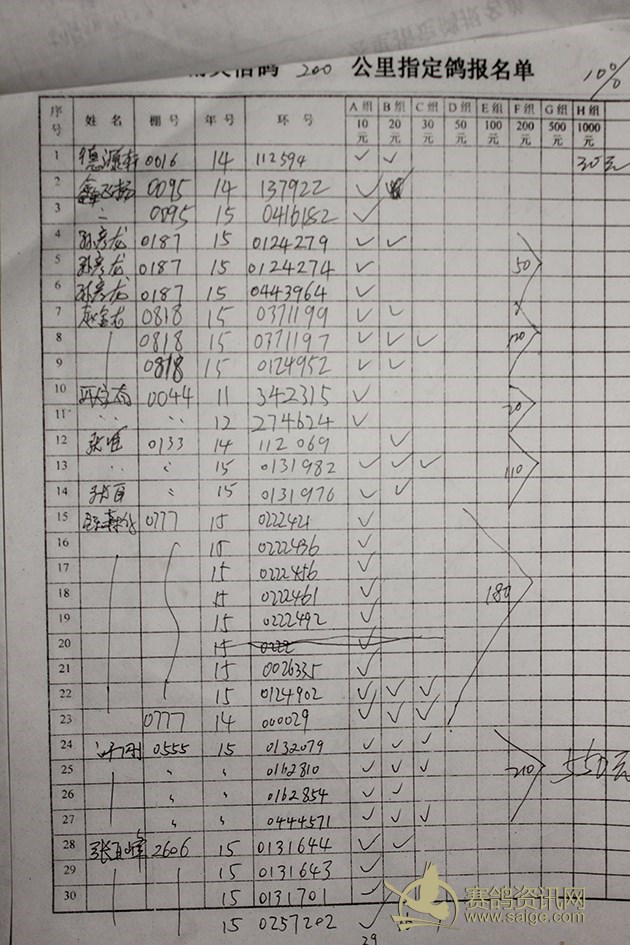 200 公里指定鸽报名单
10%
序号 姓 名 棚 号 年 号 环 号 A 组 B 组 C 组 D 组 E 组 F 组 G 组 H 组
10元 20元 30元 50元 100元 200元 500元 1000元
1 德源轩 0016 14 112594 ✓ ✓ 30元
2 0095 14 137922 ✓
3 〃 0095 15 0416182 ✓
4 孙彦龙 0187 15 0124279 ✓ ✓
5 孙彦龙 0187 15 0124274 ✓ 50
6 孙彦龙 0187 15 0443964 ✓
7 0818 15 0371199 ✓ ✓
8 0818 15 0371197 ✓ ✓ ✓
9 0818 15 0124952 ✓ ✓
10 0044 11 342315 ✓
11 〃 〃 12 274624 ✓ 20
12 0133 14 112069 ✓
13 〃 〃 15 0131982 ✓ ✓ ✓ 110
14 〃 15 0131976 ✓ ✓
15 0777 15 0222421 ✓
16 15 0222436 ✓
17 15 0222456 ✓
18 15 0222461 ✓ 180
19 15 0222492 ✓
20 15 0222 ✓
21 15 0026335 ✓
22 15 0124902 ✓ ✓ ✓
23 0777 14 000029 ✓ ✓ ✓
24 0555 15 0132079 ✓ ✓ ✓
25 〃 〃 0162810 ✓ ✓ ✓ 210 550元
26 〃 〃 0162854 ✓ ✓
27 〃 〃 0444571 ✓ ✓ ✓
28 2606 15 0131644 ✓ ✓
29 15 0131643 ✓
30 15 0131701 ✓
15 0257202 ✓
29
赛鸽资讯网
www.saige.com